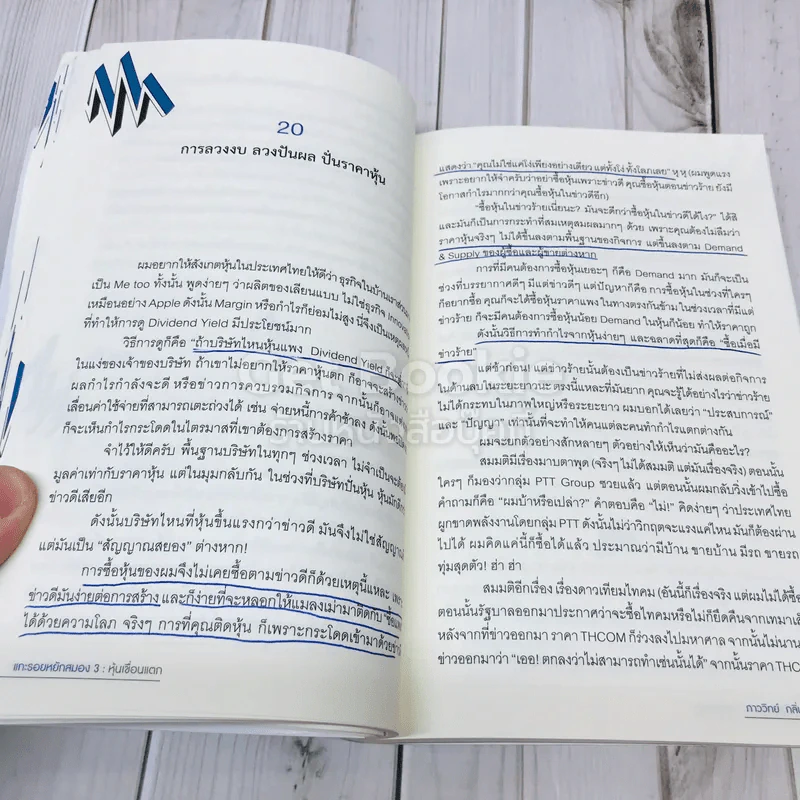 20
การลวงงบ ลวงปันผล ปั่นราคาหุ้น
ผมอยากให้สังเกตหุ้นในประเทศไทยให้ดีว่า ธุรกิจในบ้านเราส่วน
เป็น Me too ทั้งนั้น พูดง่ายๆ ว่าผลิตของเลียนแบบ ไม่ใช่ธุรกิจ
เหมือนอย่าง Apple ดังนั้น Margin หรือกำไรก็ย่อมไม่สูง นี่จึงเป็นเหตุ
ที่ทำให้การดู Dividend Yield มีประโยชน์มาก
วิธีการดูก็คือ "ถ้าบริษัทไหนหุ้นแพง Dividend Yield
ในแง่ของเจ้าของบริษัท ถ้าเขาไม่อยากให้ราคาหุ้นตก ก็อาจจะสร้างข่าว
ผลกำไรกำลังจะดี หรือข่าวการควบรวมกิจการ จากนั้นก็อาจ
เลื่อนค่าใช้จ่ายที่สามารถเตะถ่วงได้ เช่น จ่ายหนี้การค้าช้าลง ดังนั้น
ก็จะเห็นกำไรกระโดดในไตรมาสที่เขาต้องการสร้างราคา
จำไว้ให้ดีครับ พื้นฐานบริษัทในทุกๆ ช่วงเวลา ไม่จำเป็นจะต้อง
มูลค่าเท่ากับราคาหุ้น แต่ในมุมกลับกัน ในช่วงที่บริษัทปั่นหุ้น หุ้นมัก
ข่าวดีเสียอีก
ดังนั้นบริษัทไหนที่หุ้นขึ้นแรงกว่าข่าวดี มันจึงไม่ใช่สัญญาณ
แต่มันเป็น "สัญญาณสยอง" ต่างหาก!
การซื้อหุ้นของผมจึงไม่เคยซื้อตามข่าวดีก็ด้วยเหตุนี้แหละ
ข่าวดีมันง่ายต่อการสร้าง และก็ง่ายที่จะหลอกให้แมลงเม่ามาติดกับ
ได้ด้วยความโลภ จริงๆ การที่คุณติดหุ้น ก็เพราะกระโดดเข้ามาด้วย
แกะรอยหยักสมอง 3 : หุ้นเขื่อนแตก
แสดงว่า "คุณไม่ใช่แค่โง่เพียงอย่างเดียว แต่ทั้งโง่ ทั้งโลภเลย" หุ หุ (ผมพูดแรง
เพราะอยากให้จำครับว่าอย่าซื้อหุ้นเพราะข่าวดี คุณซื้อหุ้นตอนข่าวร้าย ยังมี
โอกาสกำไรมากกว่าคุณซื้อหุ้นในข่าวดีอีก)
"ซื้อหุ้นในข่าวร้ายเนี่ยนะ? มันจะดีกว่าซื้อหุ้นในข่าวดีได้ไง?" ได้สิ
และมันก็เป็นการกระทำที่สมเหตุสมผลมากๆ ด้วย เพราะคุณต้องไม่ลืมว่า
ราคาหุ้นจริงๆ ไม่ได้ขึ้นลงตามพื้นฐานของกิจการ แต่ขึ้นลงตาม Demand
& Supply ของผู้ซื้อและผู้ขายต่างหาก
การที่มีคนต้องการซื้อหุ้นเยอะๆ ก็คือ Demand มาก มันก็จะเป็น
ช่วงที่บรรยากาศดีๆ มีแต่ข่าวดีๆ แต่ปัญหาก็คือ การซื้อหุ้นในช่วงที่ใครๆ
ก็อยากซื้อ คุณก็จะได้ซื้อหุ้นราคาแพง ในทางตรงกันข้าม ในช่วงเวลาที่มีแต่
ข่าวร้าย ก็จะมีคนต้องการซื้อหุ้นน้อย Demand ในหุ้นก็น้อย ทำให้ราคาถูก
ดังนั้นวิธีการทำกำไรจากหุ้นง่ายๆ และฉลาดที่สุดก็คือ "ซื้อเมื่อมี
ข่าวร้าย"
แต่ช้าก่อน! แต่ข่าวร้ายนั้นต้องเป็นข่าวร้ายที่ไม่ส่งผลต่อกิจการ
ในด้านลบในระยะยาวนะ ตรงนี้แหละที่มันยาก คุณจะรู้ได้อย่างไรว่าข่าวร้าย
ไม่ได้กระทบในภาพใหญ่หรือระยะยาว ผมบอกได้เลยว่า "ประสบการณ์"
และ "ปัญญา" เท่านั้นที่จะทำให้คนแต่ละคนทำกำไรแตกต่างกัน
ผมจะยกตัวอย่างสักหลายๆ ตัวอย่างให้เห็นว่ามันคืออะไร?
สมมติมีเรื่องมาบตาพุด (จริงๆ ไม่ได้สมมติ แต่มันเรื่องจริง) ตอนนั้น
ใครๆ ก็มองว่ากลุ่ม PTT Group ซวยแล้ว แต่ตอนนั้นผมกลับวิ่งเข้าไปซื้อ
คำถามก็คือ "ผมบ้าหรือเปล่า?" คำตอบคือ "ไม่!" คิดง่ายๆ ว่าประเทศไทย
ผูกขาดพลังงานโดยกลุ่ม PTT ดังนั้นไม่ว่าวิกฤตจะแรงแค่ไหน มันก็ต้องผ่าน
ไปได้ ผมคิดแค่นี้ก็ซื้อได้แล้ว ประมาณว่ามีบ้าน ขายบ้าน มีรถ ขายรถ
ทุ่มสุดตัว! ฮ่า ฮ่า
สมมติอีกเรื่อง เรื่องดาวเทียมไทคม (อันนี้ก็เรื่องจริง แต่ผมไม่ได้ซื้อ)
ตอนนั้นรัฐบาลออกมาประกาศว่าจะซื้อไทคมหรือไม่ก็ยึดคืนจากเทมาเส็ก
หลังจากที่ข่าวออกมา ราคา THCOM ก็ร่วงลงไปมหาศาล จากนั้นไม่นาน
ข่าวออกมาว่า "เออ! ตกลงว่าไม่สามารถทำเช่นนั้นได้" จากนั้นราคา THCO
ภาววิทย์ กลิ่น